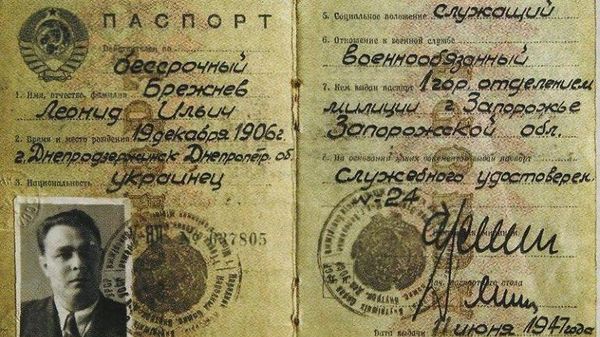 ПАСПОРТ
Действителен по
бессрочный
Брежнев
1. Имя, отчество, фамилия
Леонид Ильич
2. Время и место рождения 19 декабря 1906г.
г. Днепродзержинск Днепропетр. об.
украинец
3. Национальность
№ 637805
5. Социальное положение служащий
6. Отношение к военной службе
военнообязанный
7. Кем выдан паспорт 1 гор. отделением
милиции г. Запорожье
Запорожской обл.
8. На основании каких документов выдан паспорт
служебного удостоверен.
V-24
Нач. паспортного стола
Дата выдачи 11 июня 1947 года